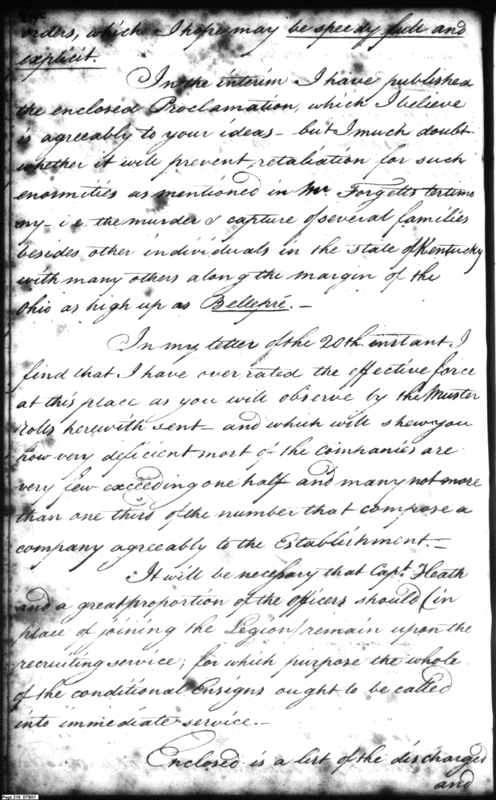 orders, which I hope may be speedy full and
explicit.
In the interim I have published
the enclosed Proclamation, which I believe
is agreeably to your ideas - but I much doubt
whether it will prevent, retaliation for such
enormities as mentioned in Mr Forgetts testimo
ny - i.e. the murder & capture of several families
besides other individuals in the state of Kentucky
with many others along the margin of the
Ohio as high up as Bellepré. -
In my letter of the 20th instant. I
find that I have over rated the effective force
at this place as you will observe by the Muster
rolls herewith sent - and which will shew you
how very deficient most of the companies are
very few exceeding one half and many not more
than one third of the number that compose a
company agreeably to the Establishment. -
It will be necessary that Capt. Heath
and a great proportion of the officers should (in
place of joining the Legion) remain upon the
recruiting service; for which purpose the whole
of the conditional Ensigns ought to be called
into immediate service. -
Enclosed is a list of the discharged
and